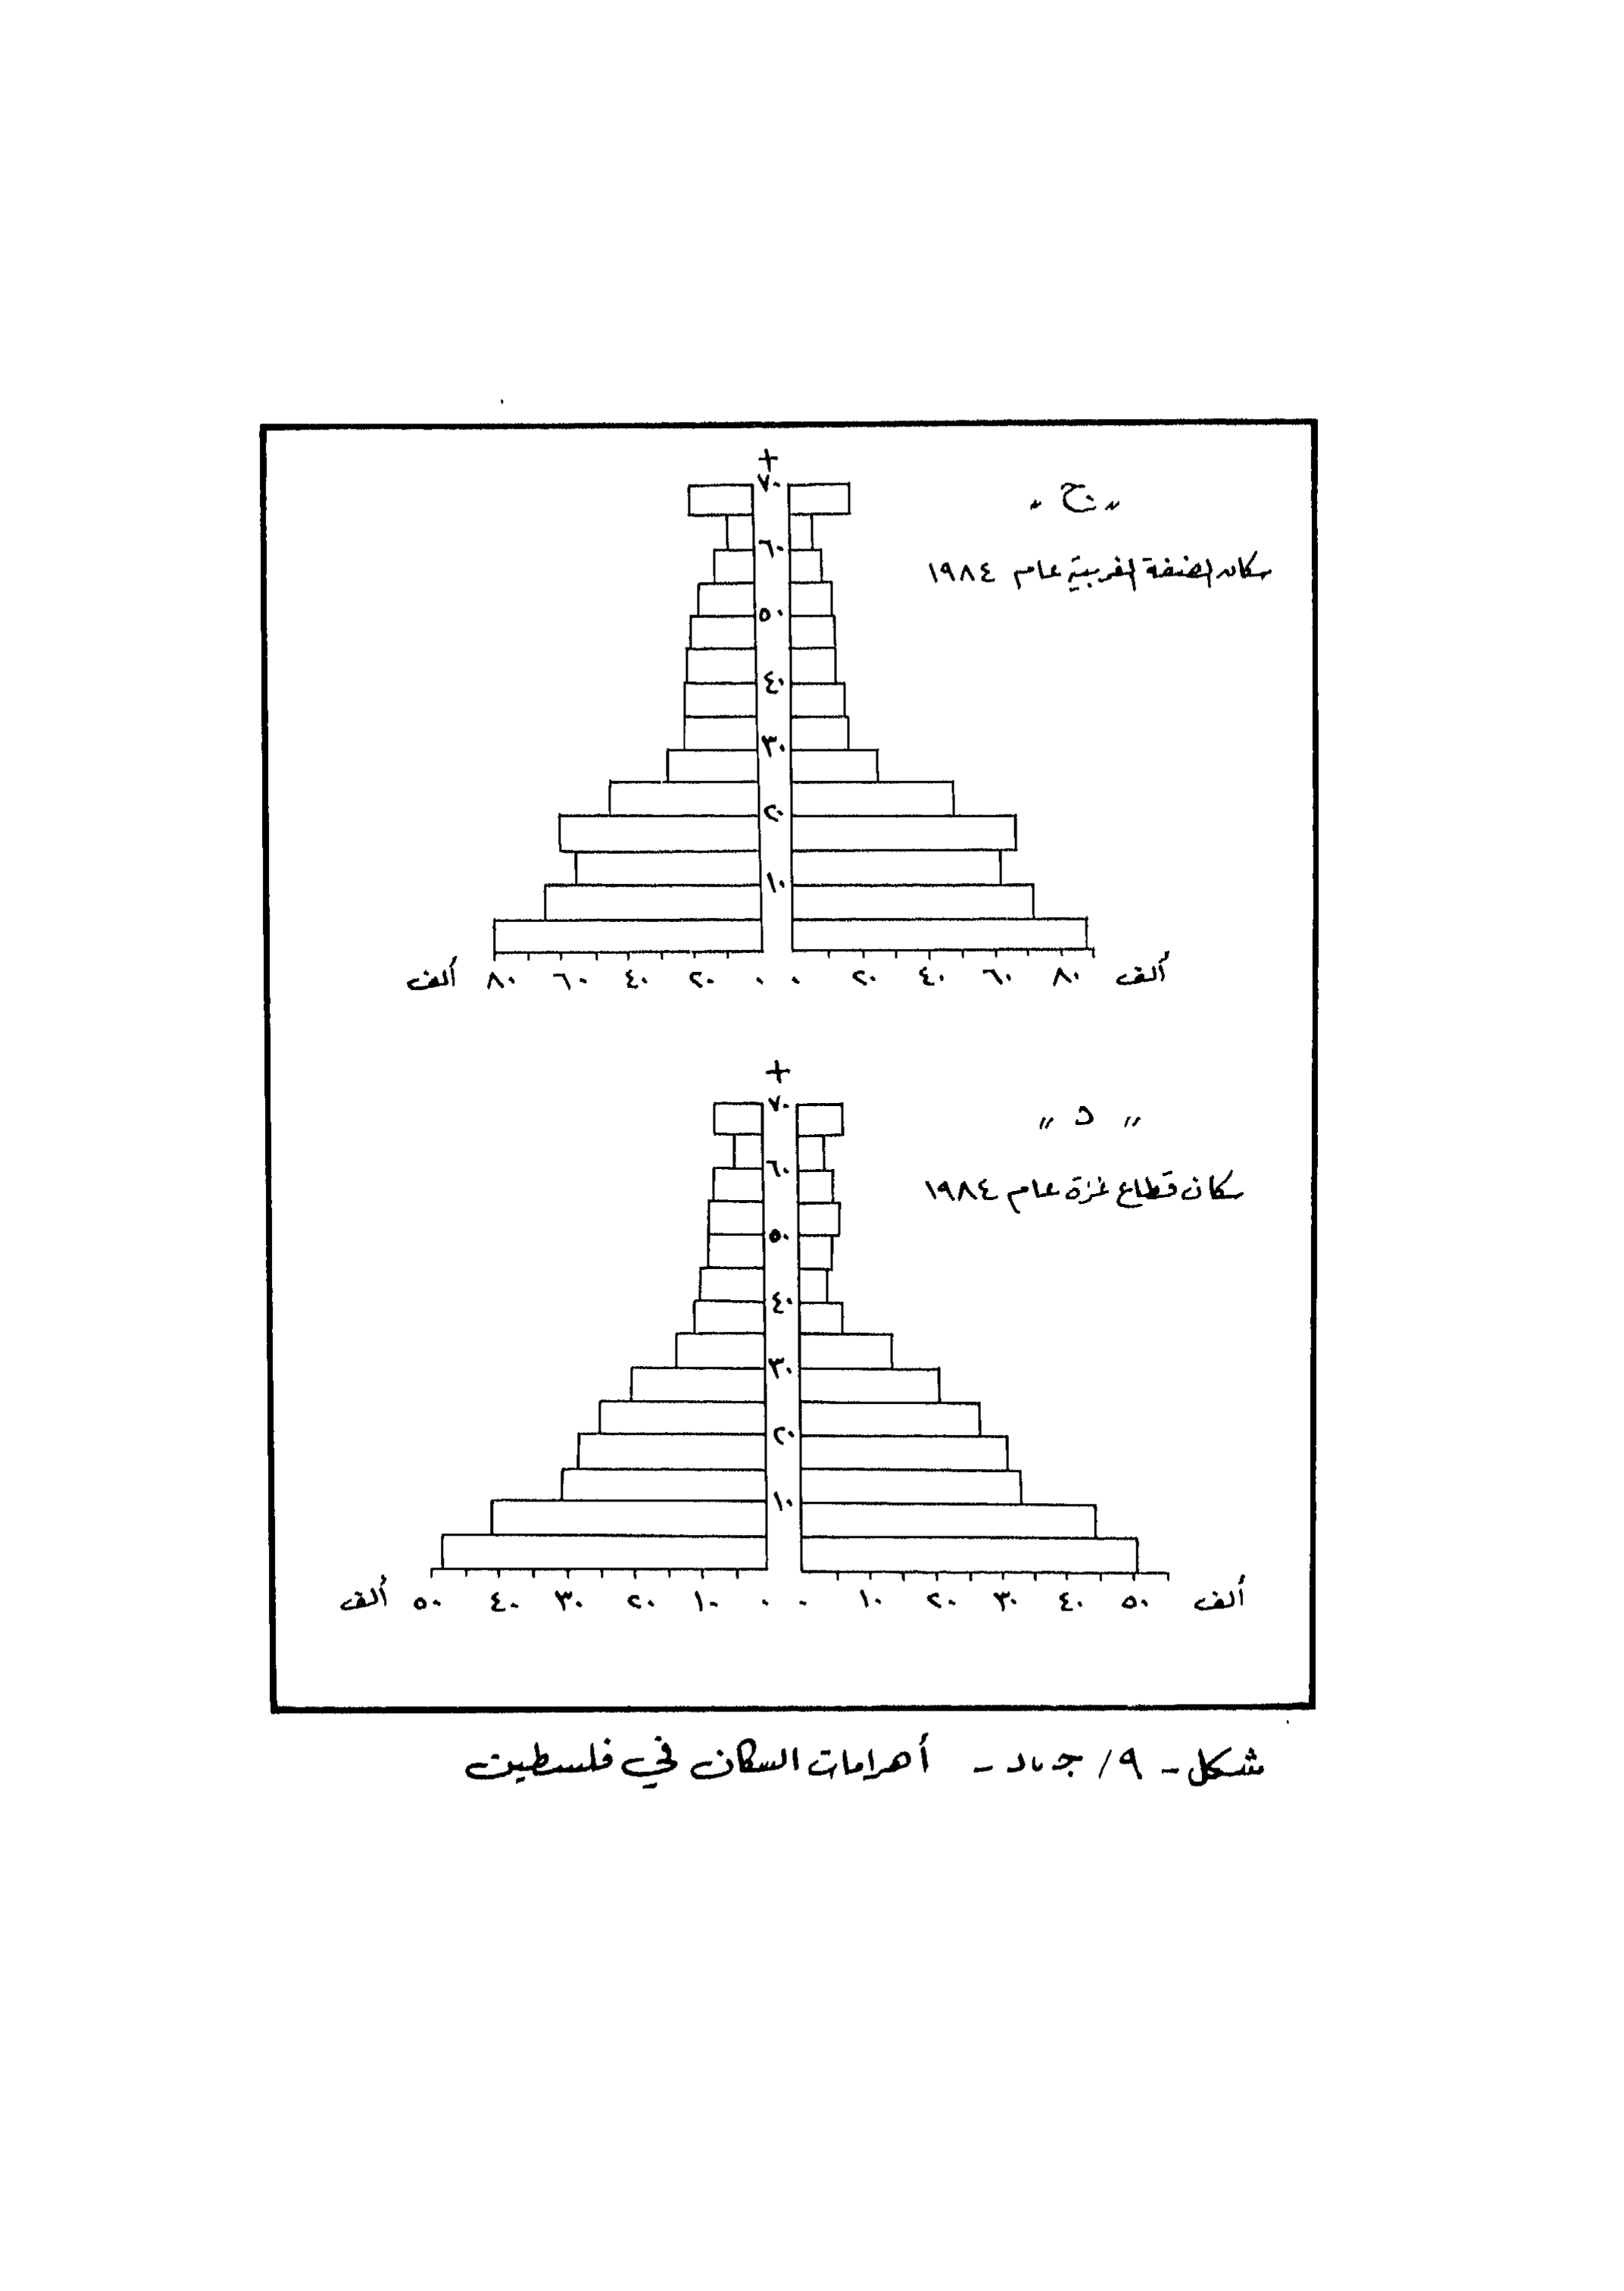 +
٧٠
„ ج „
٦٠
سكان الضفة الغربية عام ١٩٨٤
٥٠
٤٠
٣٠
٢٠
١٠
ألف ٨٠ ٦٠ ٤٠ ٢٠ ٠ ٠ ٢٠ ٤٠ ٦٠ ٨٠ ألف
+
٧٠
„ د „
٦٠
سكان قطاع غزة عام ١٩٨٤
٥٠
٤٠
٣٠
٢٠
١٠
ألف ٥٠ ٤٠ ٣٠ ٢٠ ١٠ ٠ ٠ ١٠ ٢٠ ٣٠ ٤٠ ٥٠ ألف
شكل - ٩ / ج ، د - أهرامات السكان في فلسطين